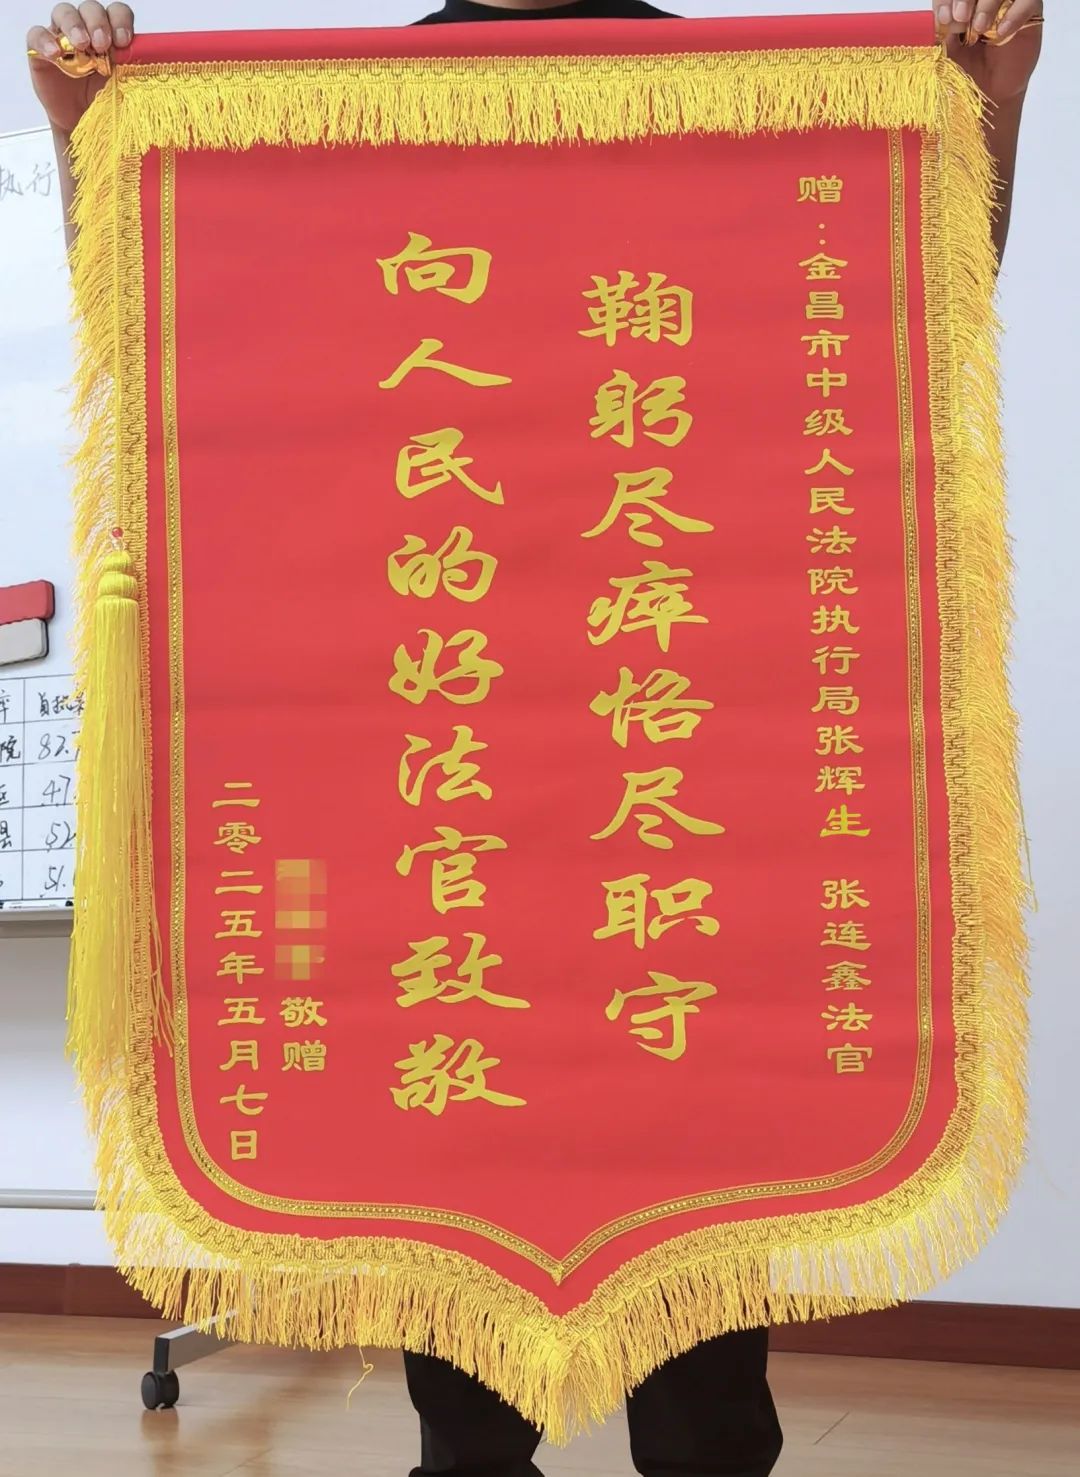 赠：金昌市中级人民法院执行局张辉生 张连鑫法官
鞠躬尽瘁恪尽职守
向人民的好法官致敬
敬赠
二零二五年五月七日
执行
院 82.
47
县 52
51.